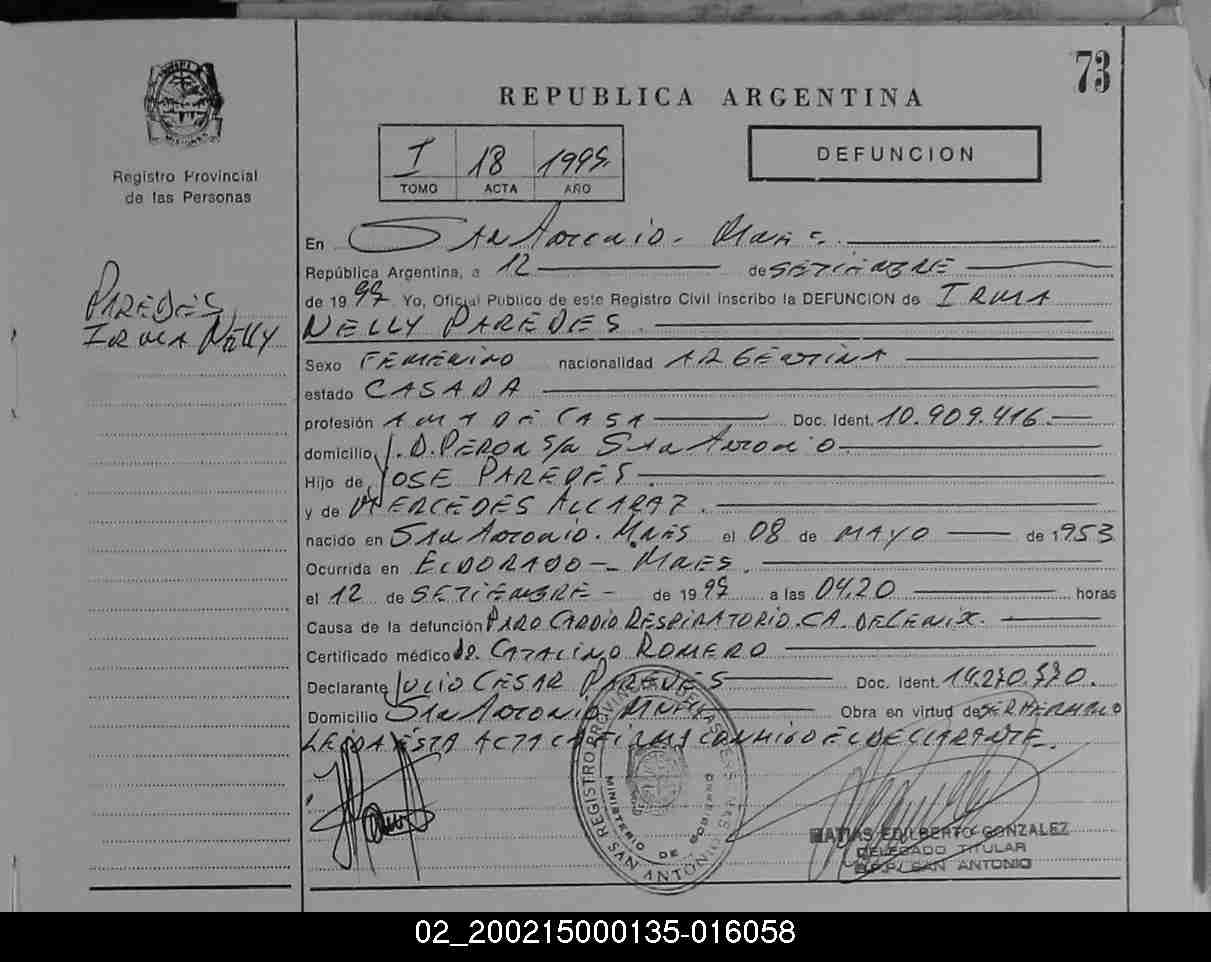 73
REPUBLICA ARGENTINA
I 18 1999
TOMO ACTA AÑO
DEFUNCION
MISIONES
Registro Provincial
de las Personas
PAREDES,
IRMA NELLY
En SAN ANTONIO - Mnes.
República Argentina, a 12 de SETIEMBRE
de 1999 Yo, Oficial Público de este Registro Civil inscribo la DEFUNCION de IRMA
NELLY PAREDES.
Sexo FEMENINO nacionalidad ARGENTINA
estado CASADA
profesión AMA DE CASA Doc. Ident. 10.909.416.
domicilio J.D. PERON S/n SAN ANTONIO
Hijo de JOSE PAREDES.
y de MERCEDES ALCARAZ.
nacido en SAN ANTONIO. Mnes el 08 de MAYO de 1953
Ocurrida en ELDORADO - MNES.
el 12 de SETIEMBRE - de 1999 a las 04,20 horas
Causa de la defunción PARO CARDIO RESPIRATORIO. CA. DE CERVIX.
Certificado médico Dr. CATALINO ROMERO
Declarante JULIO CESAR PAREDES Doc. Ident. 14.270.770.
Domicilio SAN ANTONIO MNES Obra en virtud de SER HERMANO
LEIDA ESTA ACTA LA FIRMA CONMIGO EL DECLARANTE.
REGISTRO PROVINCIAL DE LAS PERSONAS
MINISTERIO DE GOBIERNO
SAN ANTONIO
MATIAS EDILBERTO GONZALEZ
DELEGADO TITULAR
R.P.P. SAN ANTONIO
02_200215000135-016058